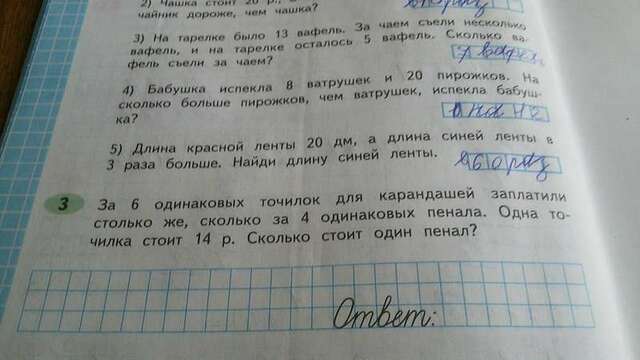 2) Чашка стоит 20 р., 
чайник дороже, чем чашка?
3) На тарелке было 13 вафель. За чаем съели несколько
вафель, и на тарелке осталось 5 вафель. Сколько ва-
фель съели за чаем?
4) Бабушка испекла 8 ватрушек и 20 пирожков. На
сколько больше пирожков, чем ватрушек, испекла бабуш-
ка?
5) Длина красной ленты 20 дм, а длина синей ленты в
3 раза больше. Найди длину синей ленты.
3 За 6 одинаковых точилок для карандашей заплатили
столько же, сколько за 4 одинаковых пенала. Одна то-
чилка стоит 14 р. Сколько стоит один пенал?
Ответ: